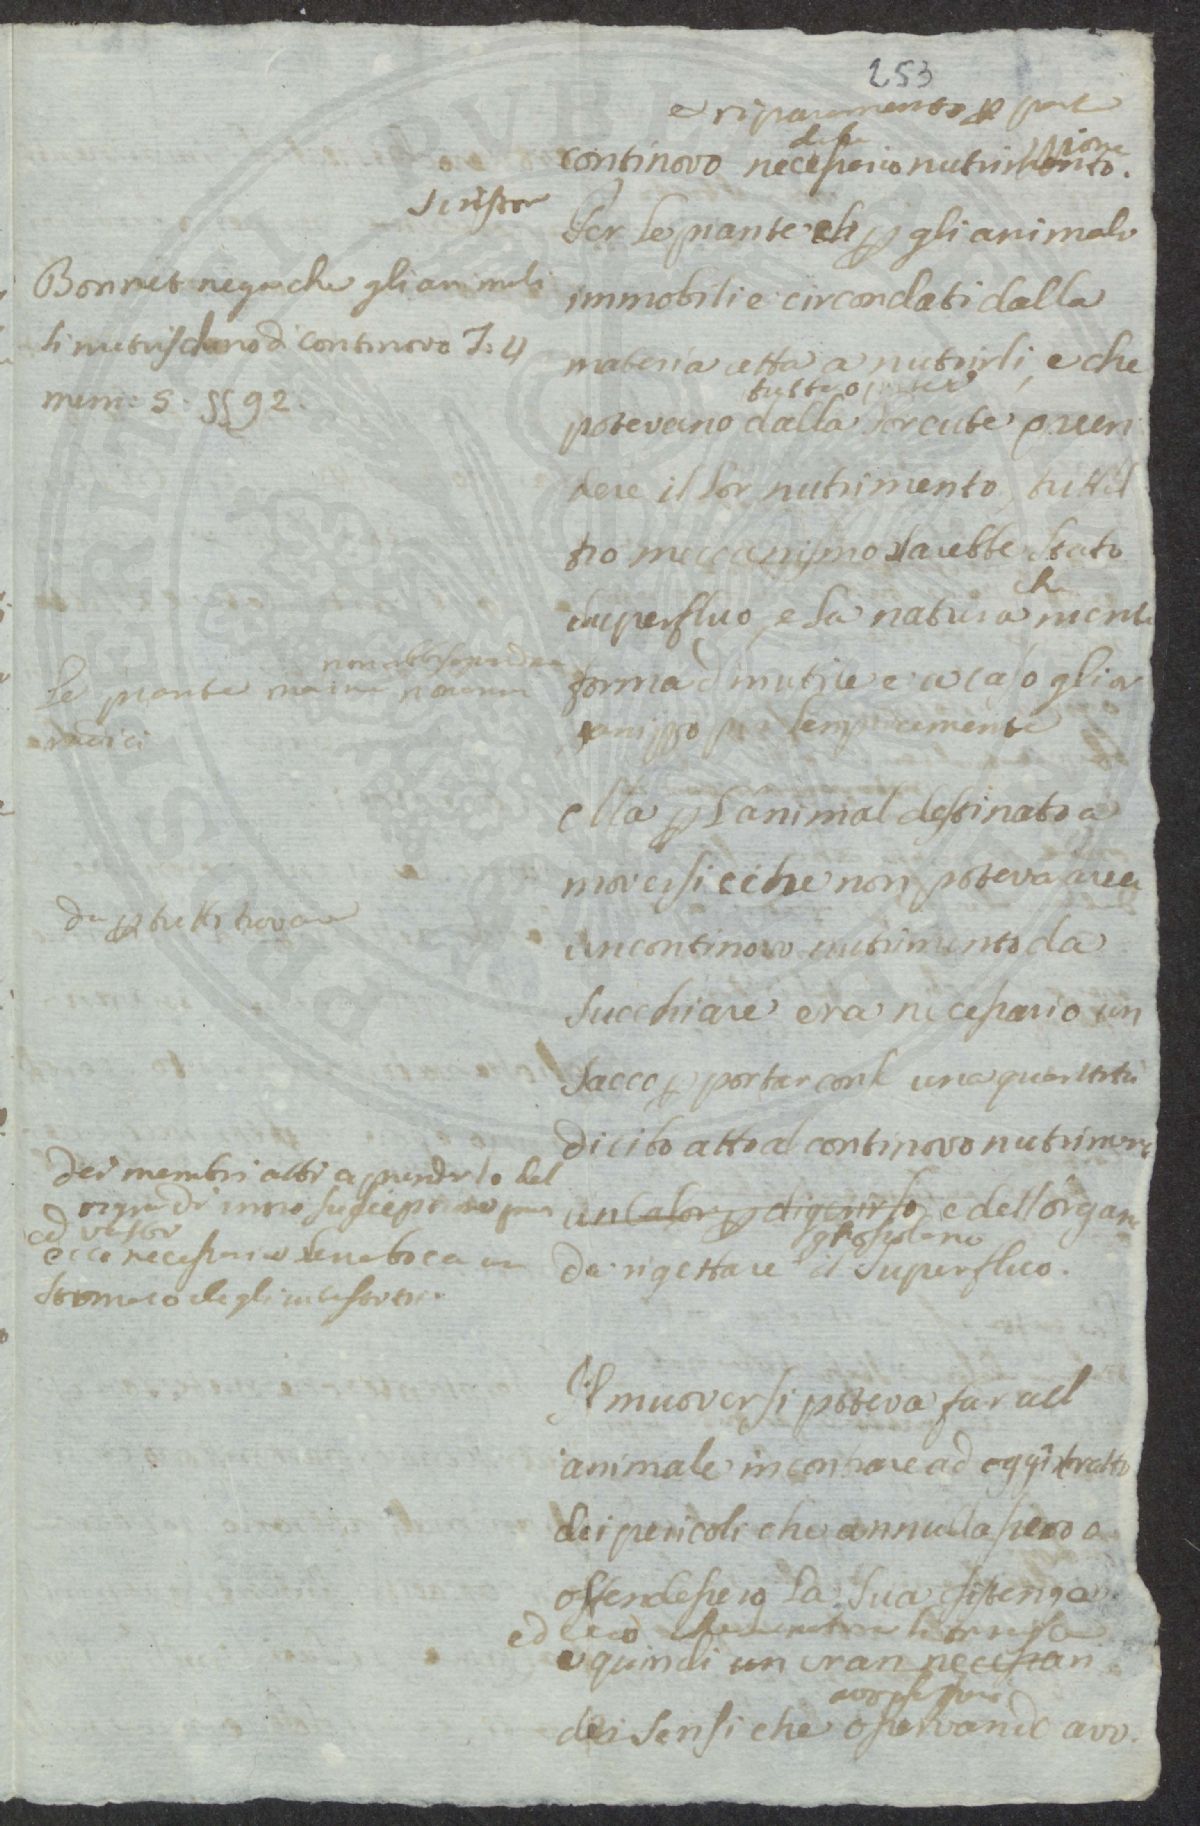 253
e riparamento per parte
continovo necessario nutrimento.
Per le piante e per gli animali
immobili e circondati dalla
materia atta a nutrirli, e che
potevano dalla lor cute pren
dere il lor nutrimento, tutt'al
tro meccanismo sarebbe stato
superfluo e la natura che niente
forma d'inutile e a caso gli or
ganizzò semplicemente
ella per l'animal destinato a
moversi e che non poteva aver
un continovo nutrimento da
succhiare era necessario un
sacco per portar con se una quantità
di cibo atto al continovo nutrimen
un calor per digerirlo e dell'organ
da rigettare il superfluo.
Il muoversi poteva far all
animale incontrare ad ogni tratto
dei pericoli che annullassero o
offendessero la sua esistenza
ed ecco
e quindi un eran necessari
dei sensi che osservando avv.
Bonnet nega che gli animali
si nutrischano di continovo T. 4
mem. 5. §§ 92.
Le piante marine non anno
radici
da per tutto trovare
dei membri atti a prenderlo
ecco necessario bocca un
stomaco e degli intestini.